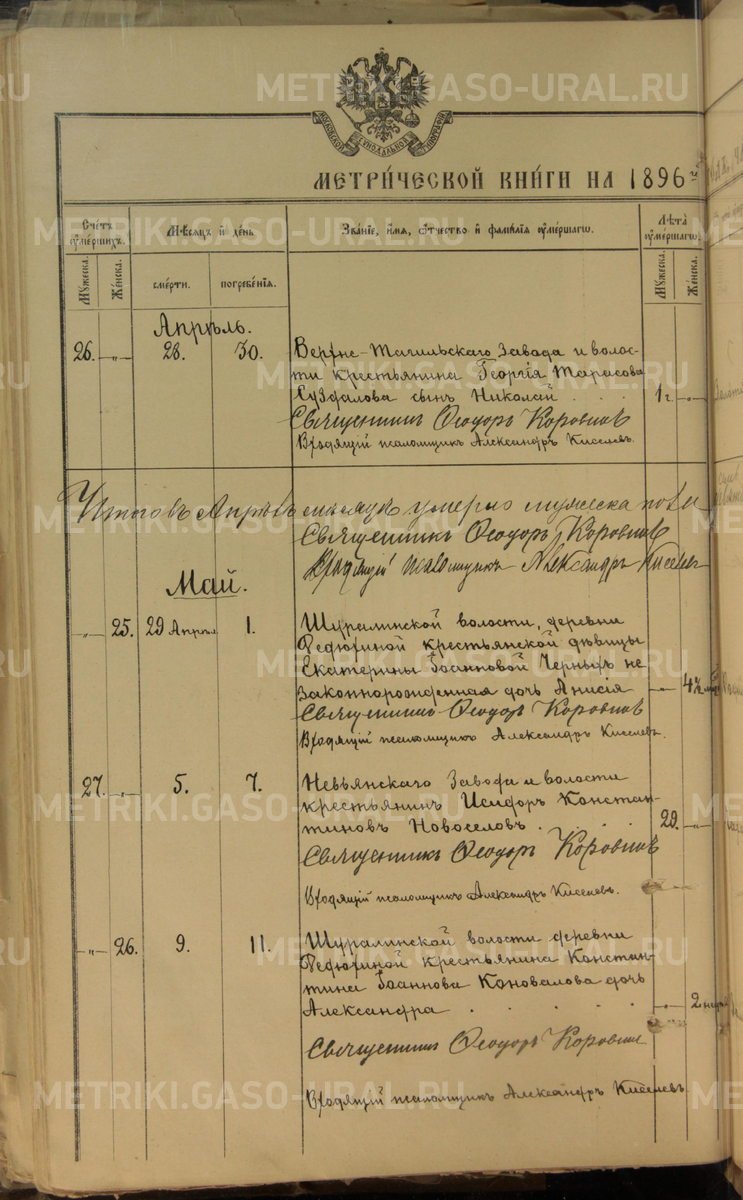 METRIKI.GASO-URAL.RU
МОСКОВСКОЙ СѴНОДАЛЬНОЙ ТИПОГРАФІИ
МЕТРИ́ЧЕСКОЙ КНИ́ГИ НА 1896
Сче́тъ ᲂу҆ме́ршихъ.
Мѣ́сяцъ и҆ де́нь
Зва́нїе, и҆́мя, ѻ҆́тчество и҆ фами́лїя ᲂу҆ме́ршагѡ.
Лѣ́та ᲂу҆ме́ршагѡ.
Му́жеска.
Же́нска.
сме́рти.
погребе́нїя.
Му́жеска.
Же́нска.
Апрѣль.
26. -"- 28. 30. Верхне-Тагильскаго Завода и волос-
ти крестьянина Георгія Тарасова
Суздалова сынъ Николай . . 1 г. -"-
Священникъ Ѳеодоръ Коровинъ
В҃ходящій псаломщикъ Александръ Киселевъ.
Итого въ Апрѣлѣ мѣсяцѣ умерло мужеска пола
Священникъ Ѳеодоръ Коровинъ
псаломщикъ Александръ Киселевъ
Май.
-"- 25. 29 Апрѣля 1. Шуралинской волости, деревни
Ѳедюхиной крестьянской дѣвицы
Екатерины Іоанновой Черныхъ не
законнорожденная дочь Анисія -"-
Священникъ Ѳеодоръ Коровинъ
псаломщикъ Александръ Киселевъ.
27. -"- 5. 7. Невьянскаго Завода и волости
крестьянинъ Исидоръ Констан-
тиновъ Новоселовъ . . . 29. -"-
Священникъ Ѳеодоръ Коровинъ
псаломщикъ Александръ Киселевъ.
-"- 26. 9. 11. Шуралинской волости деревни
Ѳедюхиной крестьянина Констан-
тина Іоаннова Коновалова дочь
Александра . . . . . -"- 2 нед.
Священникъ Ѳеодоръ Коровинъ
псаломщикъ Александръ Киселевъ